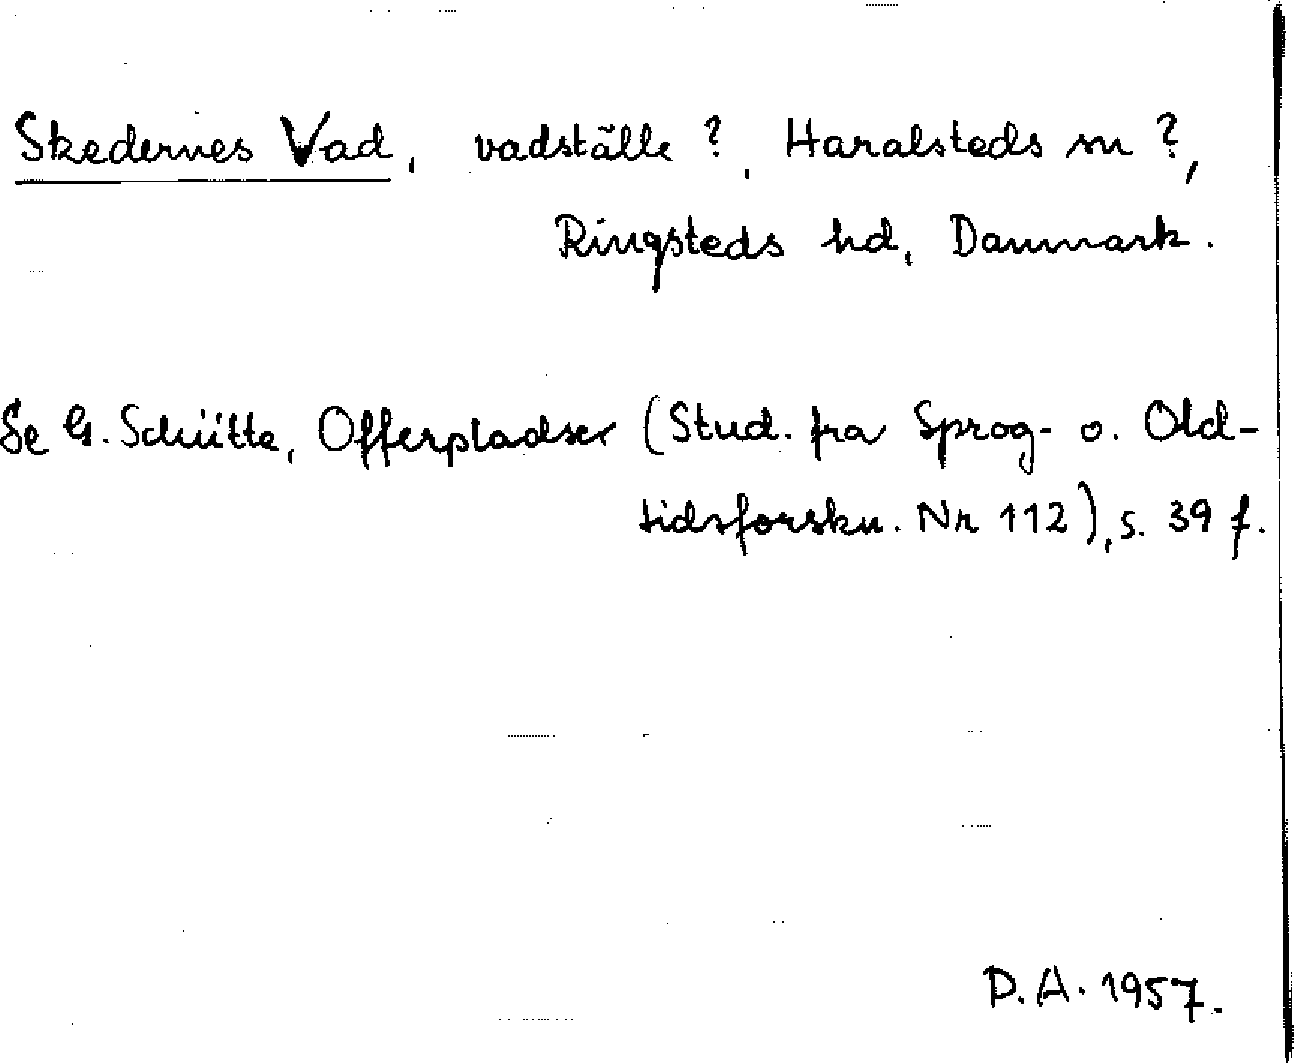 Skedernes Vad, vadställe ?, Haralsteds sn ?,
Ringsteds hd, Danmark.
Se G. Schütte, Offerpladser (Stud. fra Sprog- o. Old-
tidsforskn. Nr 112), s. 39 f.
D.A. 1957.